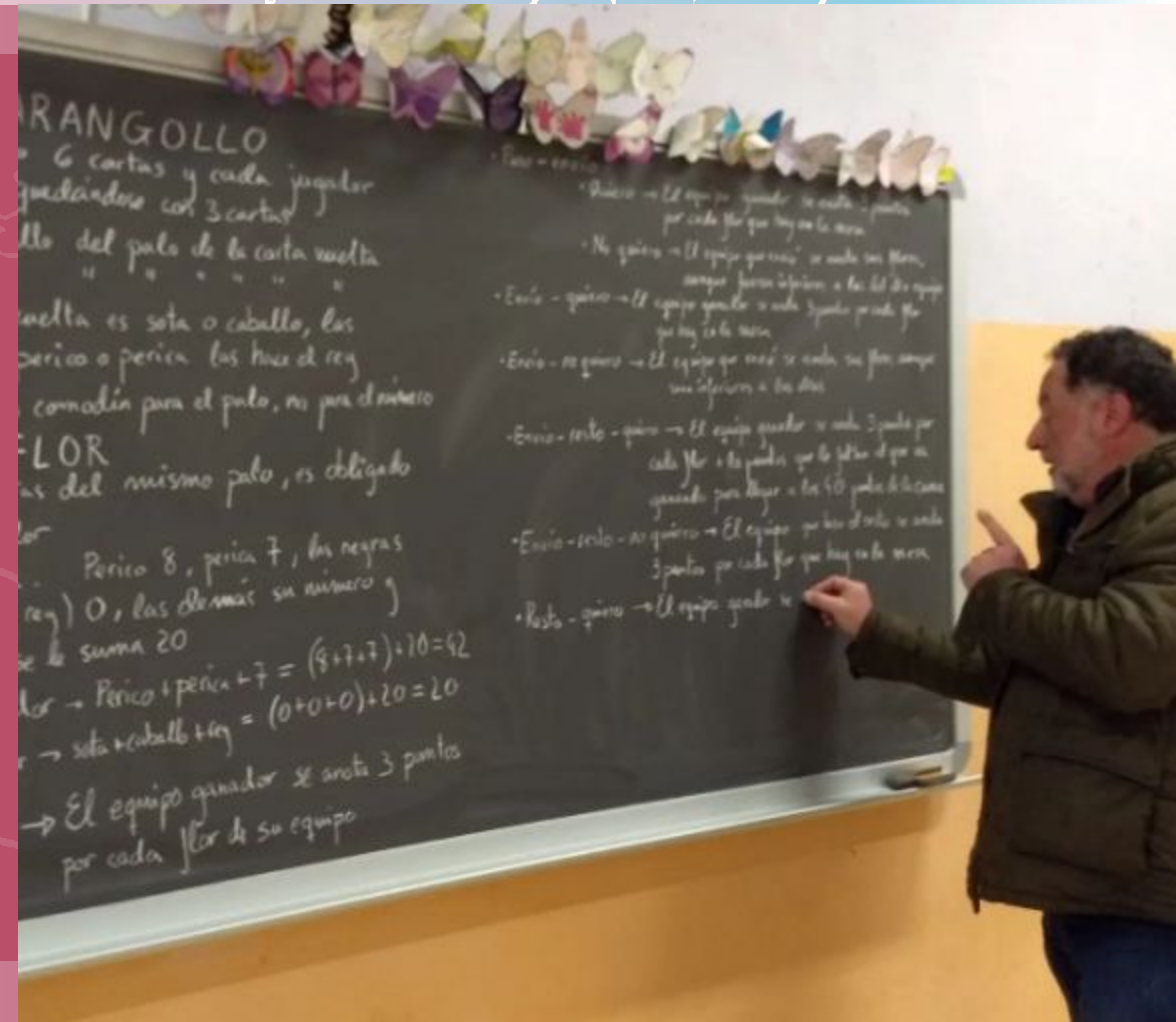 RANGOLLO
6 cartas y cada jugador
quedándose con 3 cartas
llo del palo de la carta vuelta
" " " " " "
vuelta es sota o caballo, las
perico o perica las hace el rey
comodín para el palo, no para el número
FLOR
as del mismo palo, es obligado
lor
Perico 8, perica 7, las negras
rey) 0, las demás su número y
se le suma 20
lor → Perico + perica + 7 = (8+7+7)+20=42
r → sota + caballo + rey = (0+0+0)+20=20
→ El equipo ganador se anota 3 puntos
por cada flor de su equipo
· Paso - envio
· Quiero → El equipo ganador se anota puntos
por cada flor que hay en la mesa
· No quiero → El equipo que envió se anota sus flores,
aunque fueran inferiores a las del otro equipo
· Envio - quiero → El equipo ganador se anota 3 puntos por cada flor
que hay en la mesa
· Envio - no quiero → El equipo que envió se anota sus flores aunque
sean inferiores a las otras
· Envio - resto - quiero → El equipo ganador se anota 3 puntos por
cada flor + los puntos que le faltan al que va
ganando para llegar a los 40 puntos de la cama
· Envio - resto - no quiero → El equipo que hizo el resto se anota
3 puntos por cada flor que hay en la mesa
· Resto - quiero → El equipo ganador se